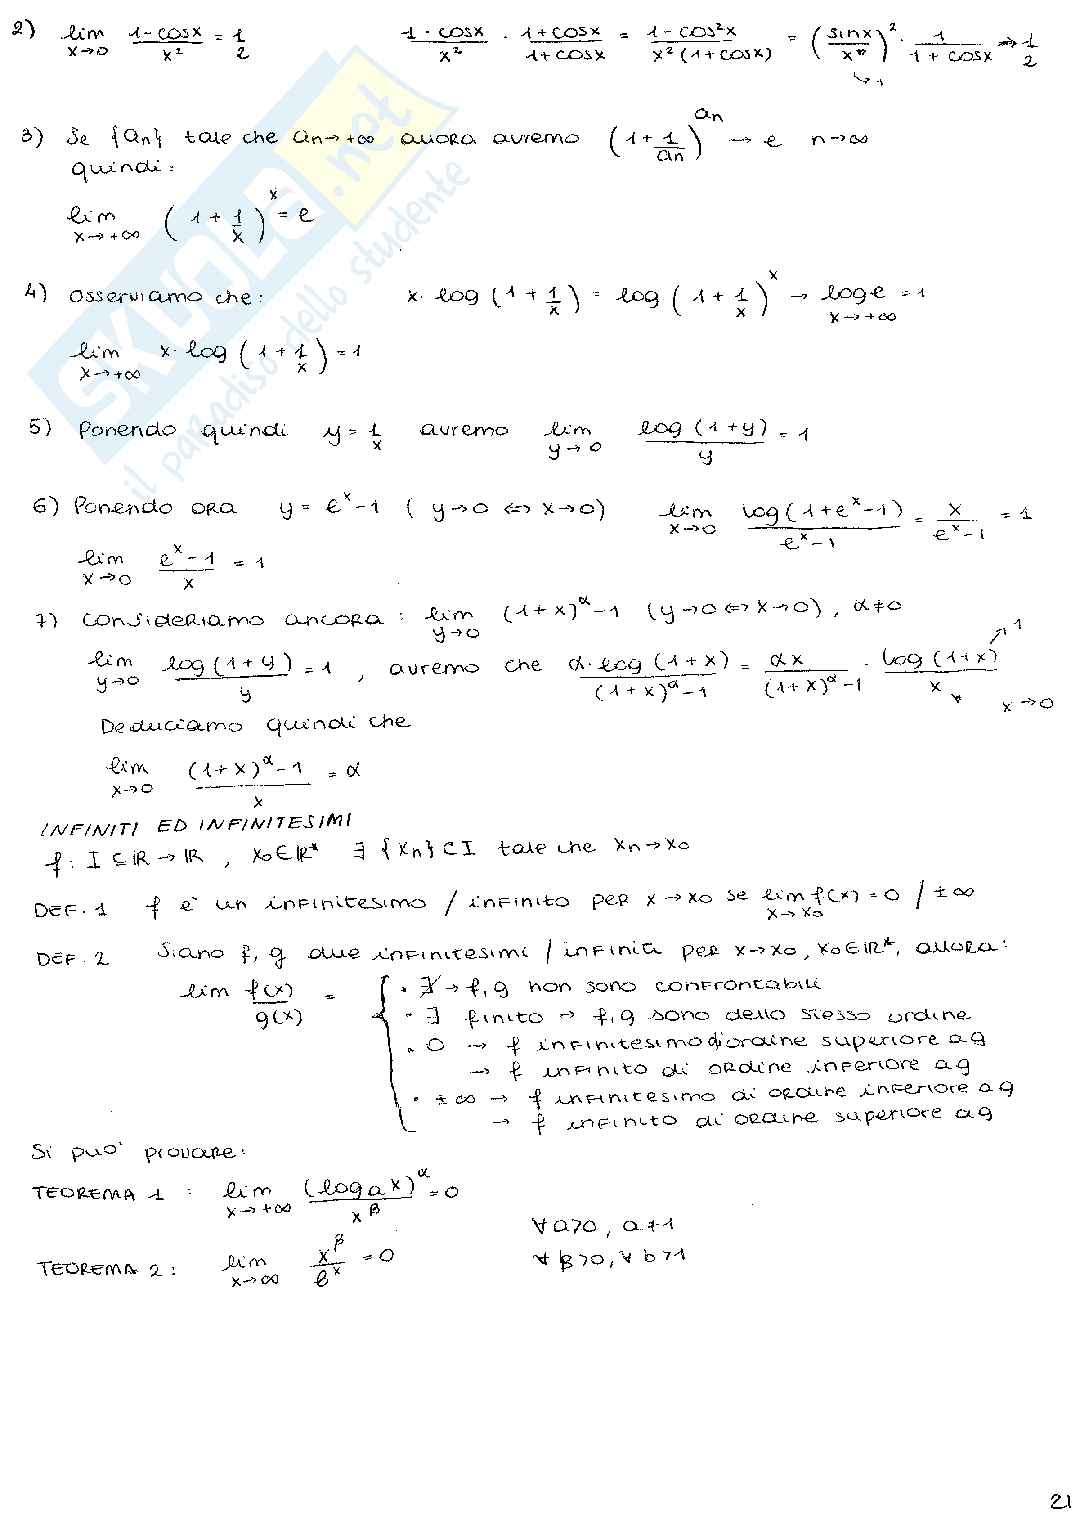 2) lim x→0 (1-cosx)/x² = 1/2   (1·cosx)/x² · (1+cosx)/(1+cosx) = (1-cos²x)/(x²(1+cosx)) = (sinx/x)² · 1/(1+cosx) → 1/2
↳1
3) Se {an} tale che an→+∞ allora avremo (1+1/an)^an → e   n→∞
quindi:
lim x→+∞ (1+1/x)^x = e
4) Osserviamo che:   x·log(1+1/x) = log(1+1/x)^x → loge = 1
x→+∞
lim x→+∞ x·log(1+1/x) = 1
5) Ponendo quindi y=1/x avremo lim y→0 log(1+y)/y = 1
6) Ponendo ora y = e^x-1 (y→0 ⇔ x→0)   lim x→0 log(1+e^x-1)/(e^x-1) = x/(e^x-1) = 1
lim x→0 (e^x-1)/x = 1
7) Consideriamo ancora: lim y→0 (1+x)^α-1 (y→0⇔x→0), α≠0
lim y→0 log(1+y)/y = 1, avremo che α·log(1+x)/((1+x)^α-1) = αx/((1+x)^α-1) · log(1+x)/x ↗1   x→0
Deduciamo quindi che
lim x→0 ((1+x)^α-1)/x = α
INFINITI ED INFINITESIMI
f: I⊆ℝ→ℝ, x0∈ℝ* ∃{xn}⊂I tale che xn→x0
DEF. 1 f è un infinitesimo / infinito per x→x0 se lim x→x0 f(x)=0 / ±∞
DEF. 2 Siano f, g due infinitesimi / infiniti per x→x0, x0∈ℝ*, allora:
lim f(x)/g(x) = { · ∄ → f, g non sono confrontabili
· ∃ finito → f, g sono dello stesso ordine
· 0 → f infinitesimo di ordine superiore a g
→ f infinito di ordine inferiore a g
· ±∞ → f infinitesimo di ordine inferiore a g
→ f infinito di ordine superiore a g
Si può provare:
TEOREMA 1 : lim x→+∞ (loga x)^α/x^β = 0
∀a>0, a≠1
TEOREMA 2 : lim x→∞ x^β/b^x = 0   ∀β>0, ∀b>1
SKUOLA.net
il paradiso dello studente
21